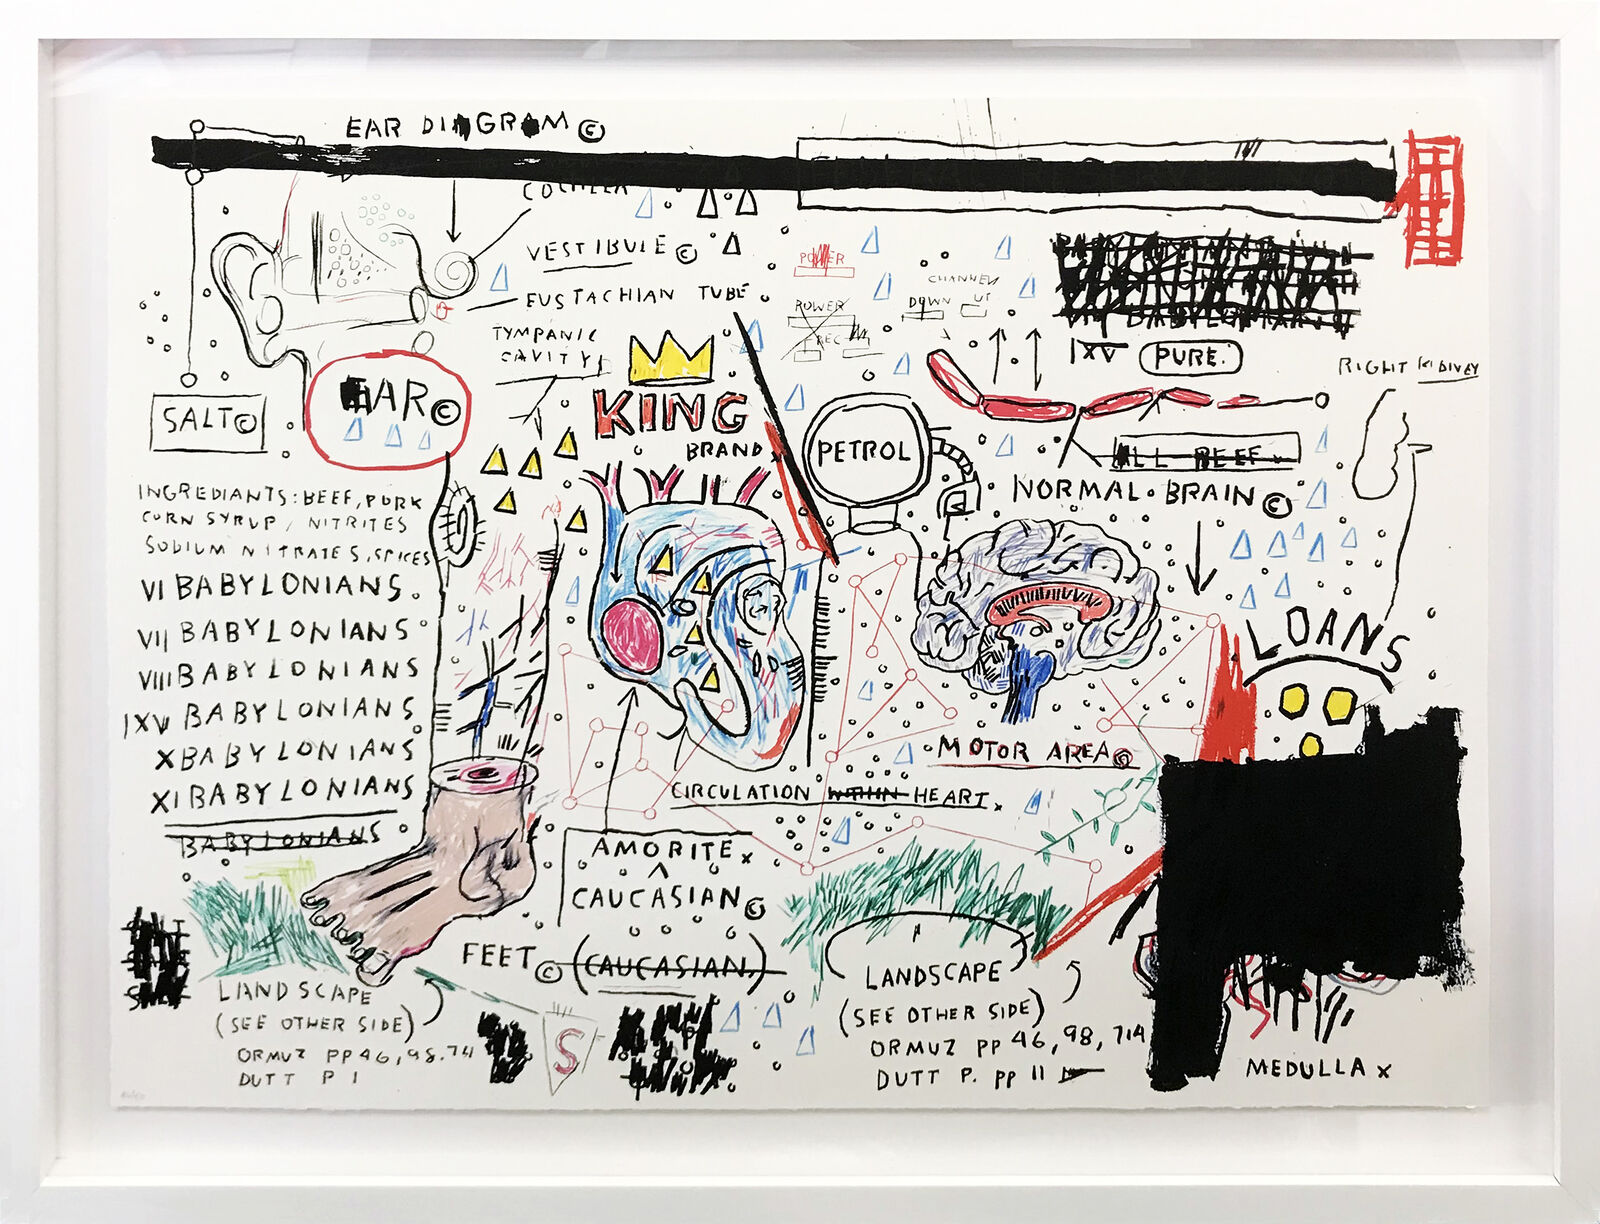 EAR DIAGRAM ©
COCHLEA
VESTIBULE ©
EUSTACHIAN TUBE
TYMPANIC
CAVITY
EAR ©
SALT ©
KING
BRAND x
POWER
POWER
REC
CHANNEL
DOWN UP
PETROL
VIII BABYLONIANS
IXV PURE.
ALL BEEF
RIGHT KIDNEY
NORMAL BRAIN ©
INGREDIANTS: BEEF, PORK
CORN SYRUP, NITRITES
SODIUM NITRATES, SPICES
VI BABYLONIANS
VII BABYLONIANS
VIII BABYLONIANS
IXV BABYLONIANS
X BABYLONIANS
XI BABYLONIANS
BABYLONIANS
LOANS
MOTOR AREA ©
CIRCULATION WITHIN HEART x
AMORITE x
^
CAUCASIAN ©
FEET © (CAUCASIAN.)
LANDSCAPE
(SEE OTHER SIDE)
ORMUZ PP 46, 98, 714
DUTT P 1
S
LANDSCAPE
(SEE OTHER SIDE)
ORMUZ PP 46, 98, 714
DUTT P. PP 11
MEDULLA x